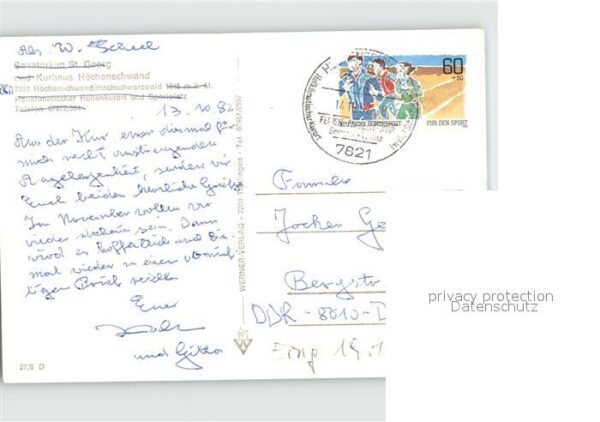 Abs. W. Scheel
Sanatorium St. Georg
und Kurhaus Höchenschwand
7821 Höchenschwand/Hochschwarzwald 1015 m ü. M.
Heilklimatischer Höhenkurort und Sportplatz
Telefon
13.10.82
Aus der Kur, einer diesmal für
mich recht anstrengenden
Angelegenheit, senden wir
Euch beiden herzliche Grüße
Im November wollen wir
wieder daheim sein. Dann
wird es hoffentlich und ein-
mal wieder zu einem
tigen Brief reichen
Euer
und Gitta
27/6 D
WERNER-VERLAG
60
+30
FÜR DEN SPORT
7821
Familie
Jochen Ge
Bergstr
DDR - 8010 - D
Eing 19.1
privacy protection
Datenschutz